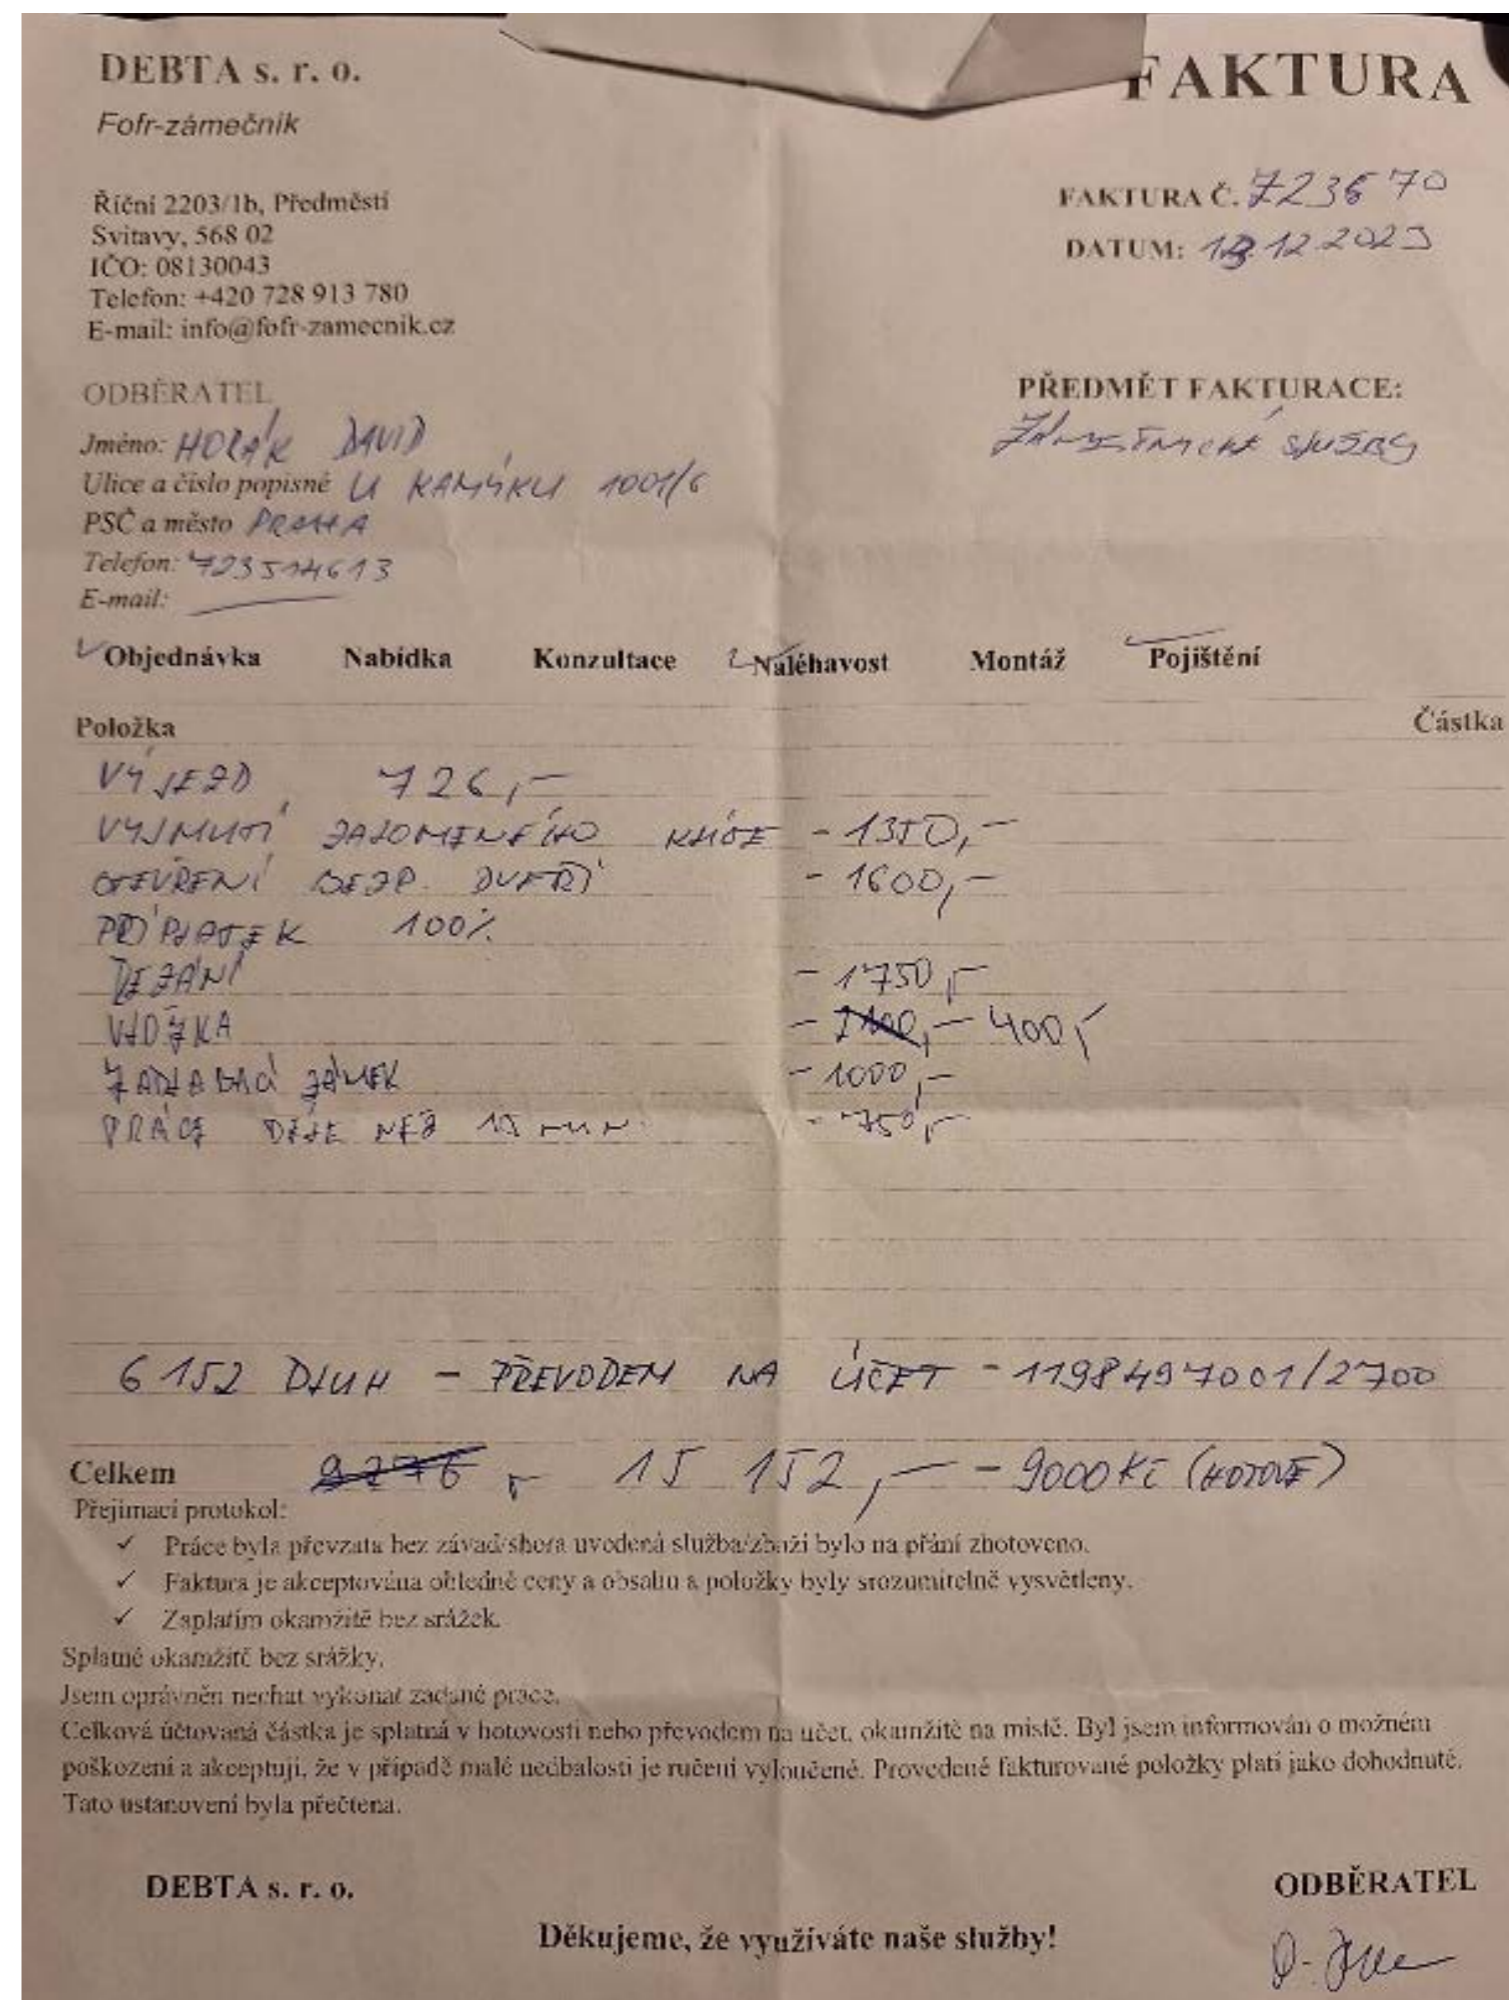 DEBTA s. r. o.
FAKTURA
Fofr-zámečník
Říční 2203/1b, Předměstí
Svitavy, 568 02
IČO: 08130043
Telefon: +420 728 913 780
E-mail: info@fofr-zamecnik.cz
FAKTURA Č. 723670
DATUM: 12 2023
ODBĚRATEL
Jméno: HORÁK DAVID
Ulice a číslo popisné U KAMÝKU 1001/6
PSČ a město PRAHA
Telefon: 723514613
E-mail:
PŘEDMĚT FAKTURACE:
ZÁMEČNICKÉ SLUŽBY
Objednávka Nabídka Konzultace Naléhavost Montáž Pojištění
Položka Částka
VÝJEZD 726,-
VYJMUTÍ ZALOMENÉHO KLÍČE - 1350,-
OTEVŘENÍ BEZP. DVEŘÍ - 1600,-
PŘÍPLATEK 100%
ŘEZÁNÍ - 1750,-
VLOŽKA - 2100,- 400,-
ZADLABACÍ ZÁMEK - 1000,-
PRÁCE DÉLE NEŽ 15 MIN. - 750,-
6 152 DLUH - PŘEVODEM NA ÚČET - 1198497001/2700
Celkem 9276,- 15 152,- - 9000 KČ (HOTOVĚ)
Přejímací protokol:
✓ Práce byla převzata bez závad/shora uvedená služba/zboží bylo na přání zhotoveno.
✓ Faktura je akceptována ohledně ceny a obsahu a položky byly srozumitelně vysvětleny.
✓ Zaplatím okamžitě bez srážek.
Splatné okamžitě bez srážky.
Jsem oprávněn nechat vykonat zadané práce.
Celková účtovaná částka je splatná v hotovosti nebo převodem na učet, okamžitě na místě. Byl jsem informován o možném
poškození a akceptuji, že v případě malé nedbalosti je ručení vyloučené. Provedené fakturované položky platí jako dohodnuté.
Tato ustanovení byla přečtena.
DEBTA s. r. o.
ODBĚRATEL
Děkujeme, že využíváte naše služby!